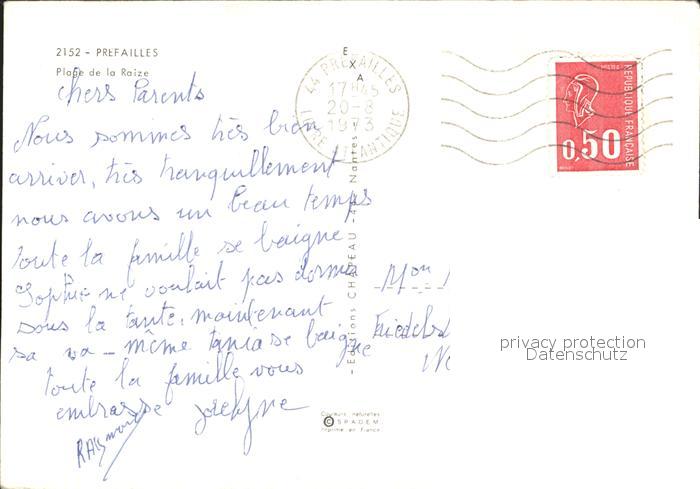 2152 - PREFAILLES
Plage de la Raize
chers Parents
Nous sommes très bien
arriver, très tranquillement
nous avons un beau temps
toute la famille se baigne
Sophie ne voulait pas dormir
sous la tante, maintenant
sa va - même tania se baigne
toute la famille vous
embrasse Jocelyne
Raymond
EXA
44 PREFAILLES
17H45
20-8
1973
LOIRE ATLANTIQUE
- Editions CHAPEAU - 44 Nantes
RÉPUBLIQUE FRANÇAISE
0,50
Mon
Friedels
privacy protection
Datenschutz
Couleurs naturelles
© SPADEM
Imprimé en France